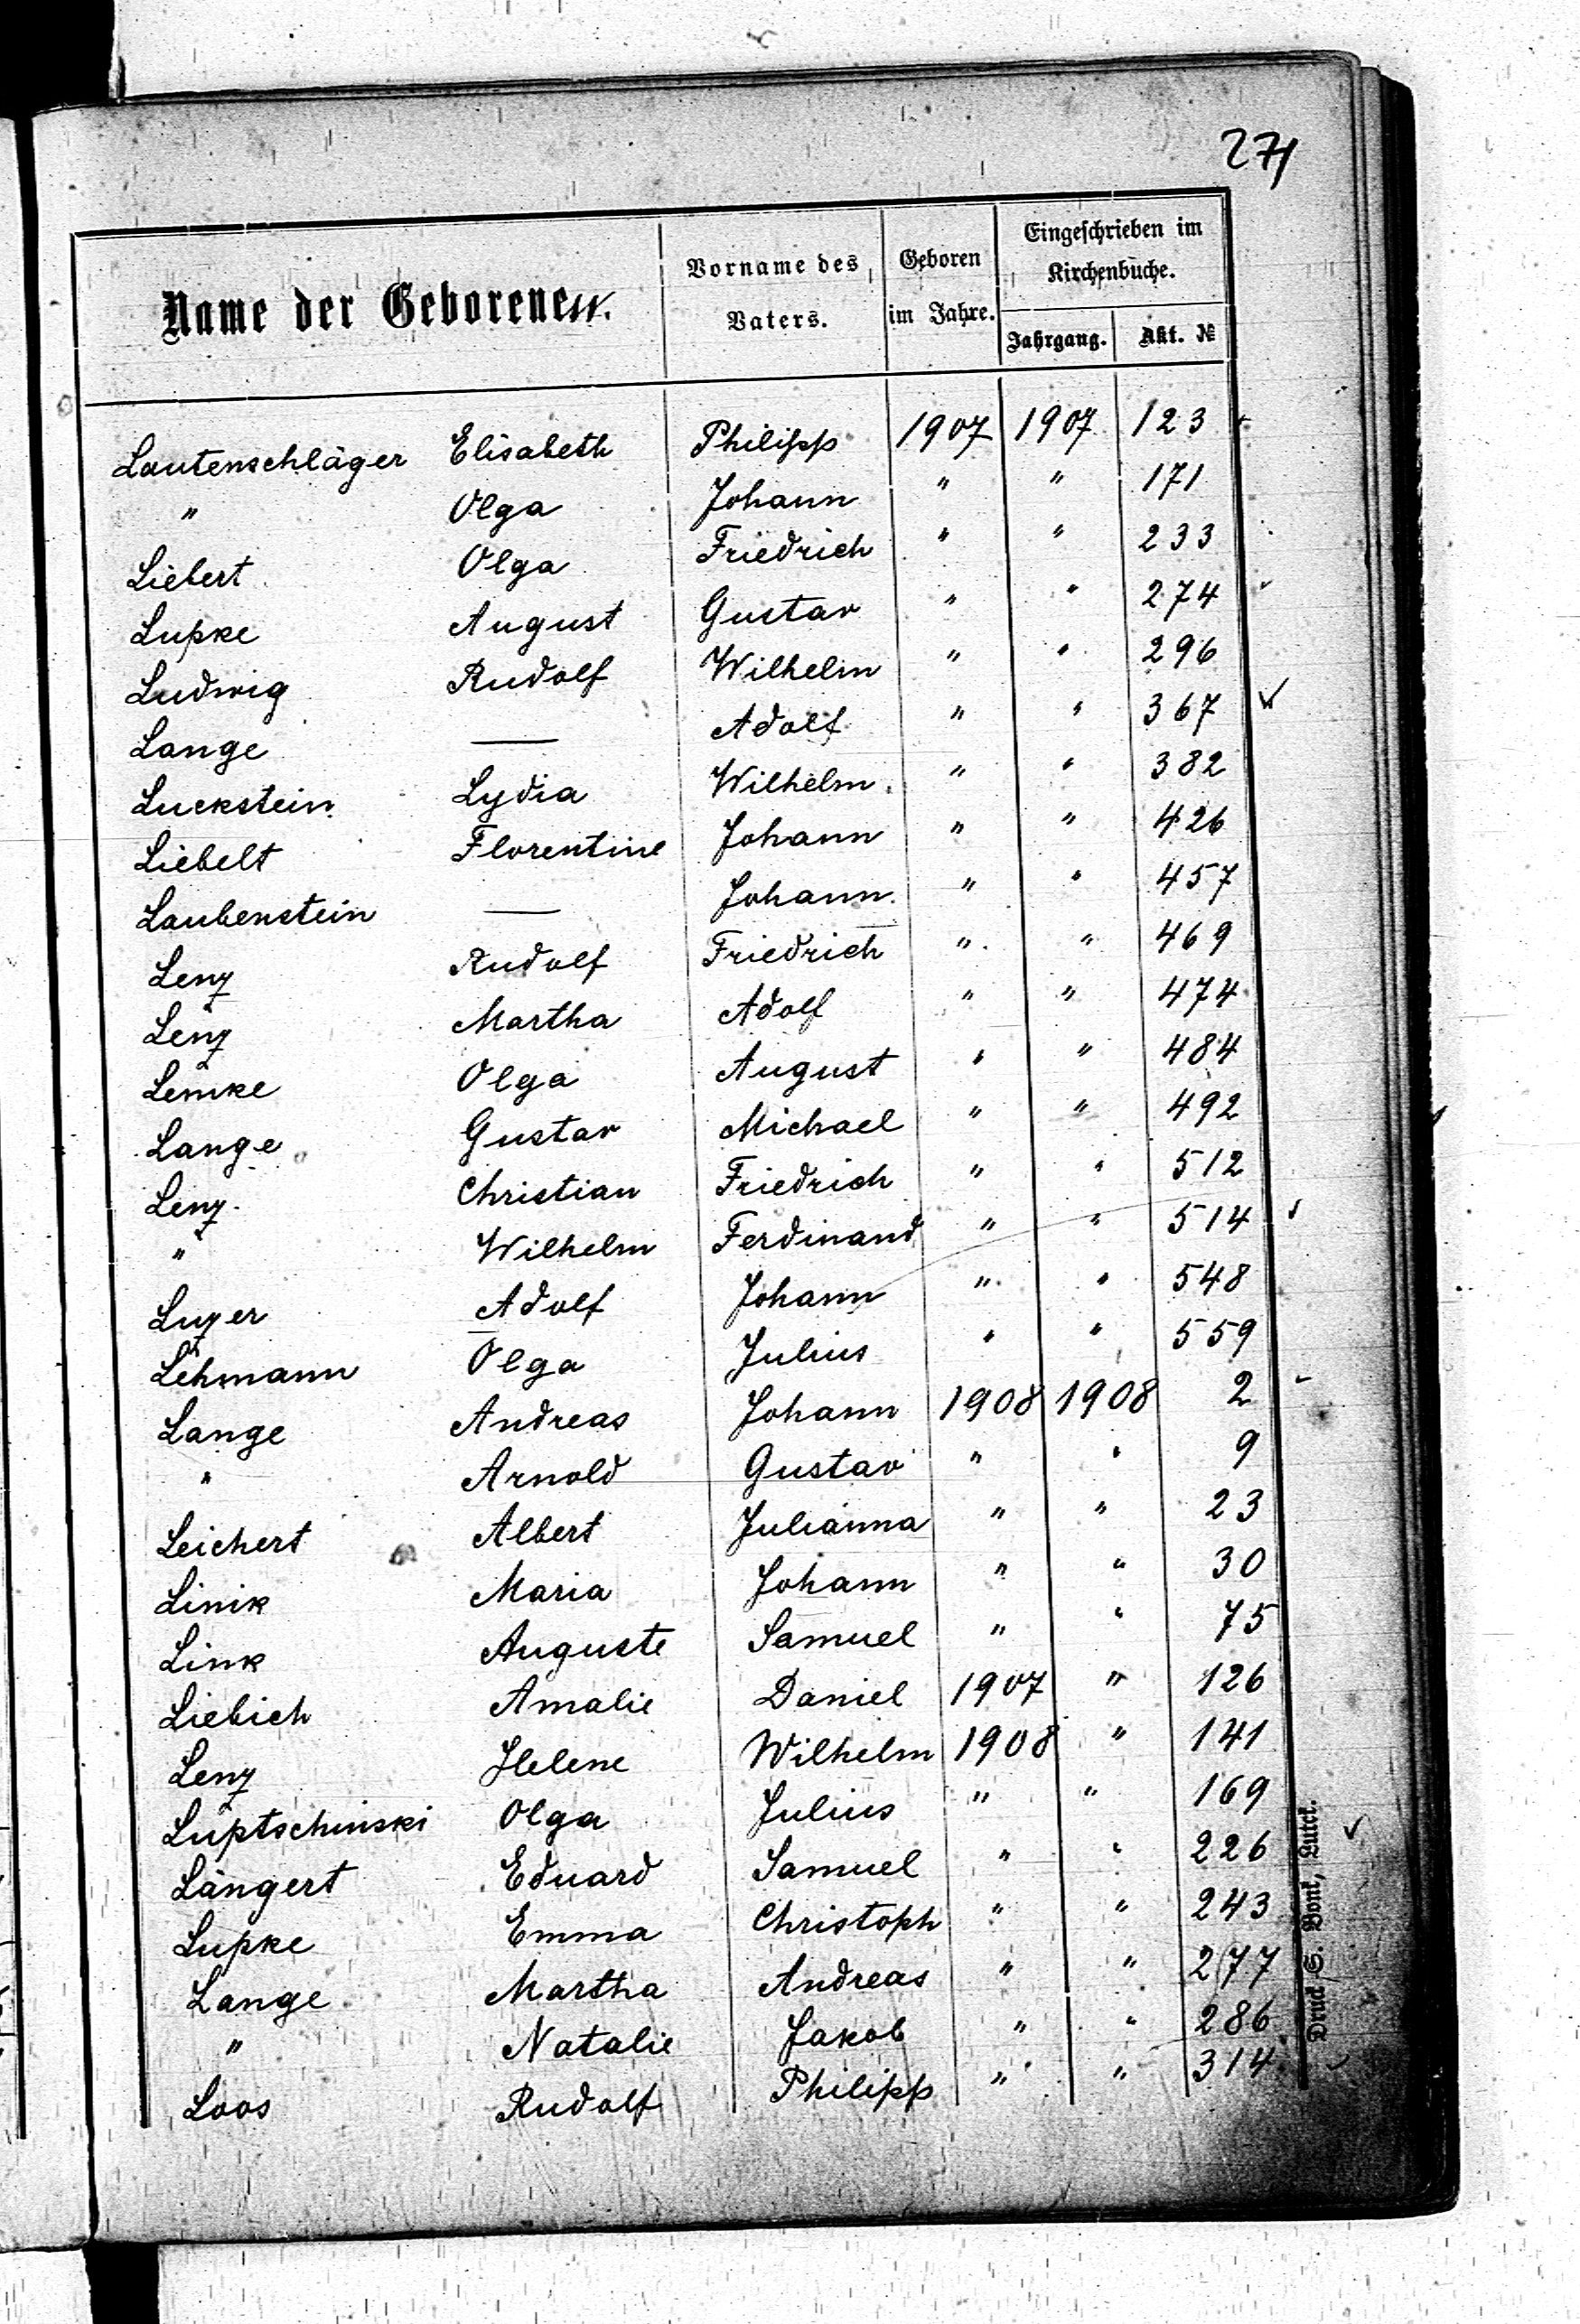 271
Name der Geborenen. Vorname des Vaters. Geboren im Jahre. Eingeschrieben im Kirchenbuche.
Jahrgang. Akt. №
Lautenschläger Elisabeth Philipp 1907 1907 123
" Olga Johann " " 171
Liebert Olga Friedrich " " 233
Lupke August Gustav " " 274
Ludwig Rudolf Wilhelm " " 296
Lange — Adolf " " 367 ✓
Luckstein Lydia Wilhelm " " 382
Liebelt Florentine Johann " " 426
Laubenstein — Johann " " 457
Lenz Rudolf Friedrich " " 469
Lenz Martha Adolf " " 474
Lemke Olga August " " 484
Lange Gustav Michael " " 492
Lenz Christian Friedrich " " 512
" Wilhelm Ferdinand " " 514 ✓
Luzer Adolf Johann " " 548
Lehmann Olga Julius " " 559
Lange Andreas Johann 1908 1908 2
" Arnold Gustav " " 9
Leichert Albert Julianna " " 23
Linik Maria Johann " " 30
Link Auguste Samuel " " 75
Liebich Amalie Daniel 1907 " 126
Lenz Helene Wilhelm 1908 " 141
Luptschinski Olga Julius " " 169
Längert Eduard Samuel " " 226 ✓
Lupke Emma Christoph " " 243
Lange Martha Andreas " " 277
" Natalie Jakob " " 286
Loos Rudolf Philipp " " 314
Druck S. Bonk, Lutck.